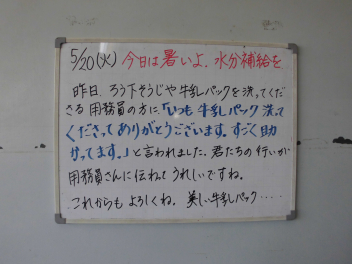 5/20(火) 今日は暑いよ. 水分補給を
昨日、ろう下そうじや牛乳パックを洗ってくだ
さる用務員の方に「いつも牛乳パック洗って
くださってありがとうございます。すごく助
かってます。」と言われました。君たちの行いが
用務員さんに伝わってうれしいですね。
これからもよろしくね。美しい牛乳パック・・・・・